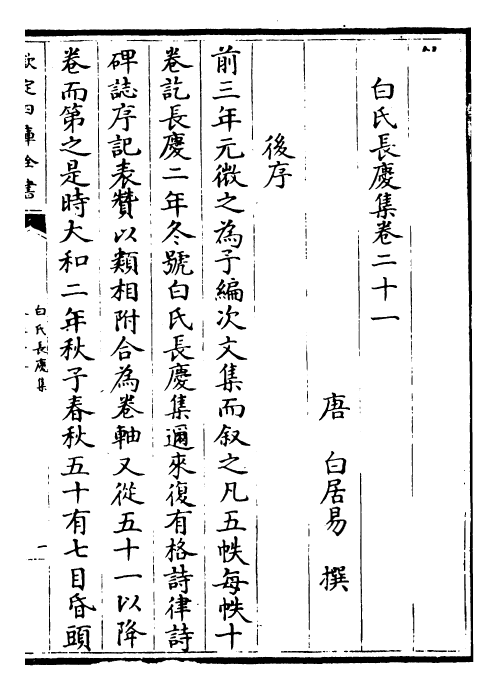 白氏長慶集卷二十一
唐 白居易 撰
後序
前三年元微之為予編次文集而叙之凡五帙每帙十
卷訖長慶二年冬號白氏長慶集邇來復有格詩律詩
碑誌序記表贊以類相附合為卷軸又從五十一以降
卷而第之是時大和二年秋予春秋五十有七目昏頭
欽定四庫全書
白氏長慶集
一